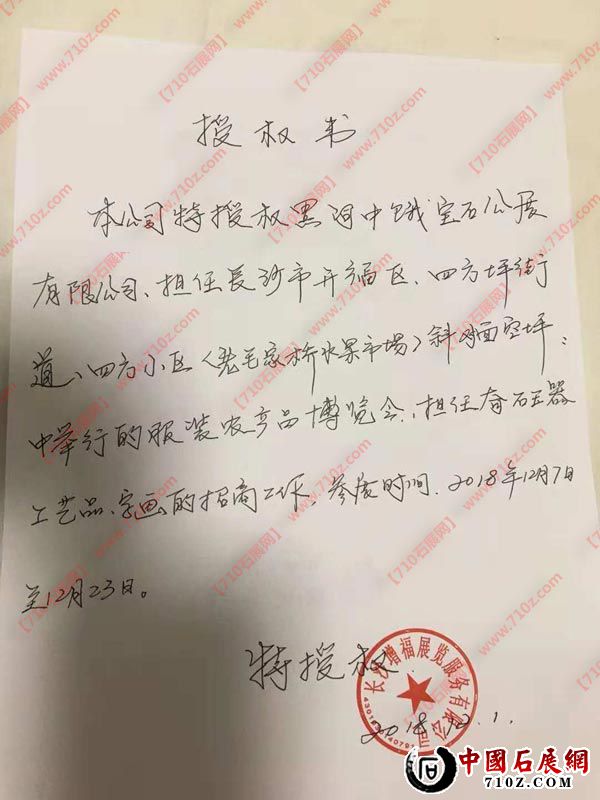 授权书
本公司特授权黑河中俄宝石公展
有限公司、担任長沙市开福区、四方坪街
道、四方小区（老毛家桥水果市場）斜对面空坪：
中举行的服装农产品博览会、担任奇石玉器
工艺品、字画的招商工作、参展时间、2018年12月7日
至12月23日。
特授权
长沙增福展览服务有限公司
2018.12.1.
中國石展網
710z.com
【710石展网】www.710z.com